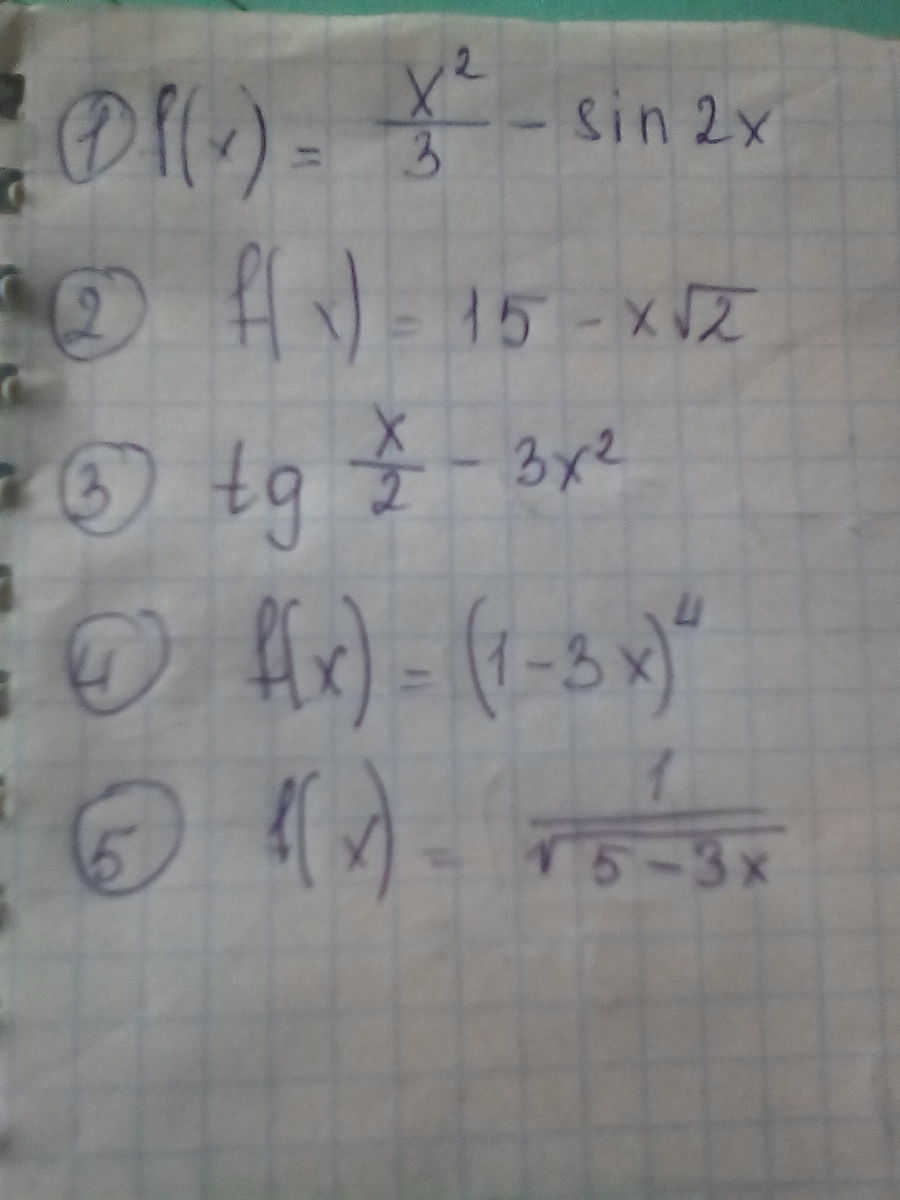 ① f(x) = x²/3 - sin 2x
② f(x) = 15 - x√2
③ tg x/2 - 3x²
④ f(x) = (1 - 3x)⁴
⑤ f(x) = 1/√(5 - 3x)